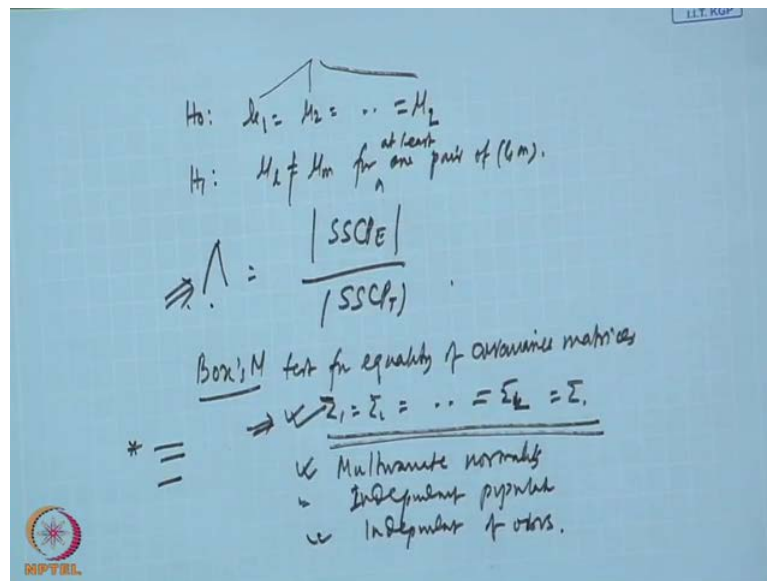 I.I.T. KGP
H0: μ1 = μ2 = ·· = μL
at least
H1: μl ≠ μm for one pair of (l, m).
|SSCPE|
⇒ Λ = 
|SSCPT|
Box's M test for equality of covariance matrices
* ⇒ Σ1 = Σ2 = ·· = ΣL = Σ.
Multivariate normality
Independent
Independent of obvs.
NPTEL